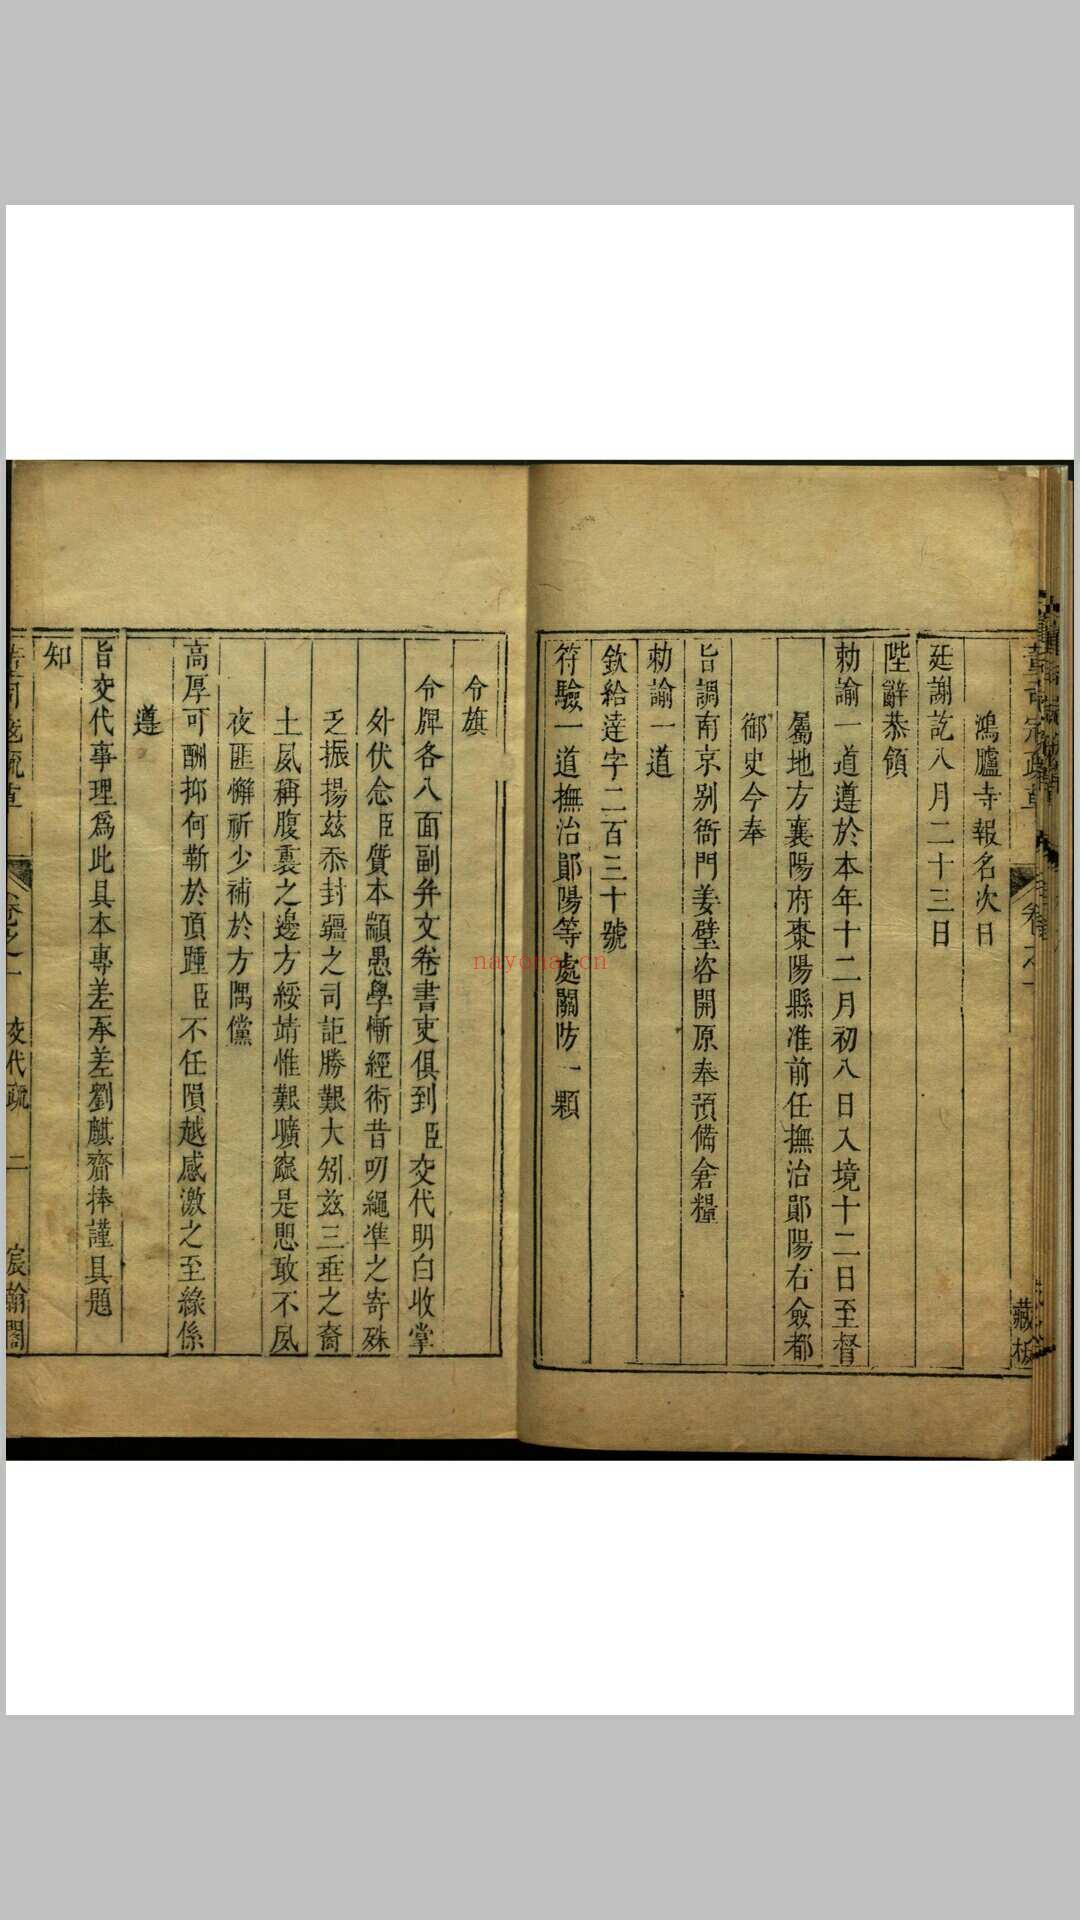 卷之一
藏板
鴻臚寺報名次日
廷謝訖八月二十三日
陛辭恭領
勑諭一道遵於本年十二月初八日入境十二日至督
屬地方襄陽府棗陽縣准前任撫治鄖陽右僉都
御史今奉
旨調南京别衙門姜璧咨開原奉預備倉糧
勑諭一道
欽給達字二百三十號
符驗一道撫治鄖陽等處關防一顆
令旗
令牌各八面副弁文卷書吏俱到臣交代明白收掌
外伏念臣質本顓愚學慚經術昔叨繩準之寄殊
乏振揚兹忝封疆之司詎勝艱大矧兹三垂之裔
土夙稱腹裏之邊方綏靖惟艱曠鰥是思敢不夙
夜匪懈祈少補於方隅儻
高厚可酬抑何靳於頂踵臣不任隕越感激之至緣係
遵
旨交代事理爲此具本專差承差劉麒齎捧謹具題
知
卷之一 交代疏 二 宸翰閣
nayona.cn